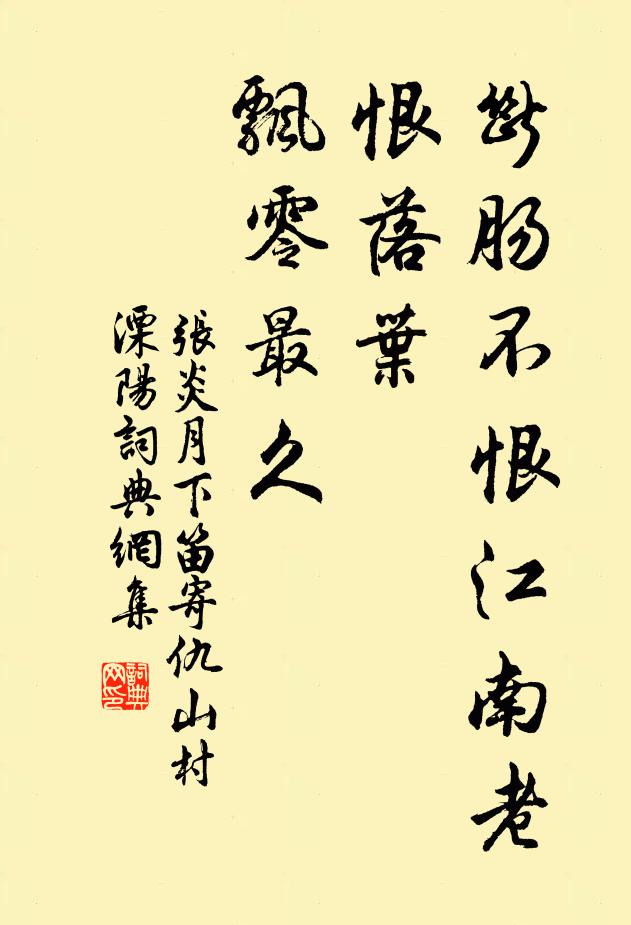 斷腸不恨江南老
恨落葉
飄零最久
張炎月下笛寄仇山村
溧陽詞典網集
詞典網印